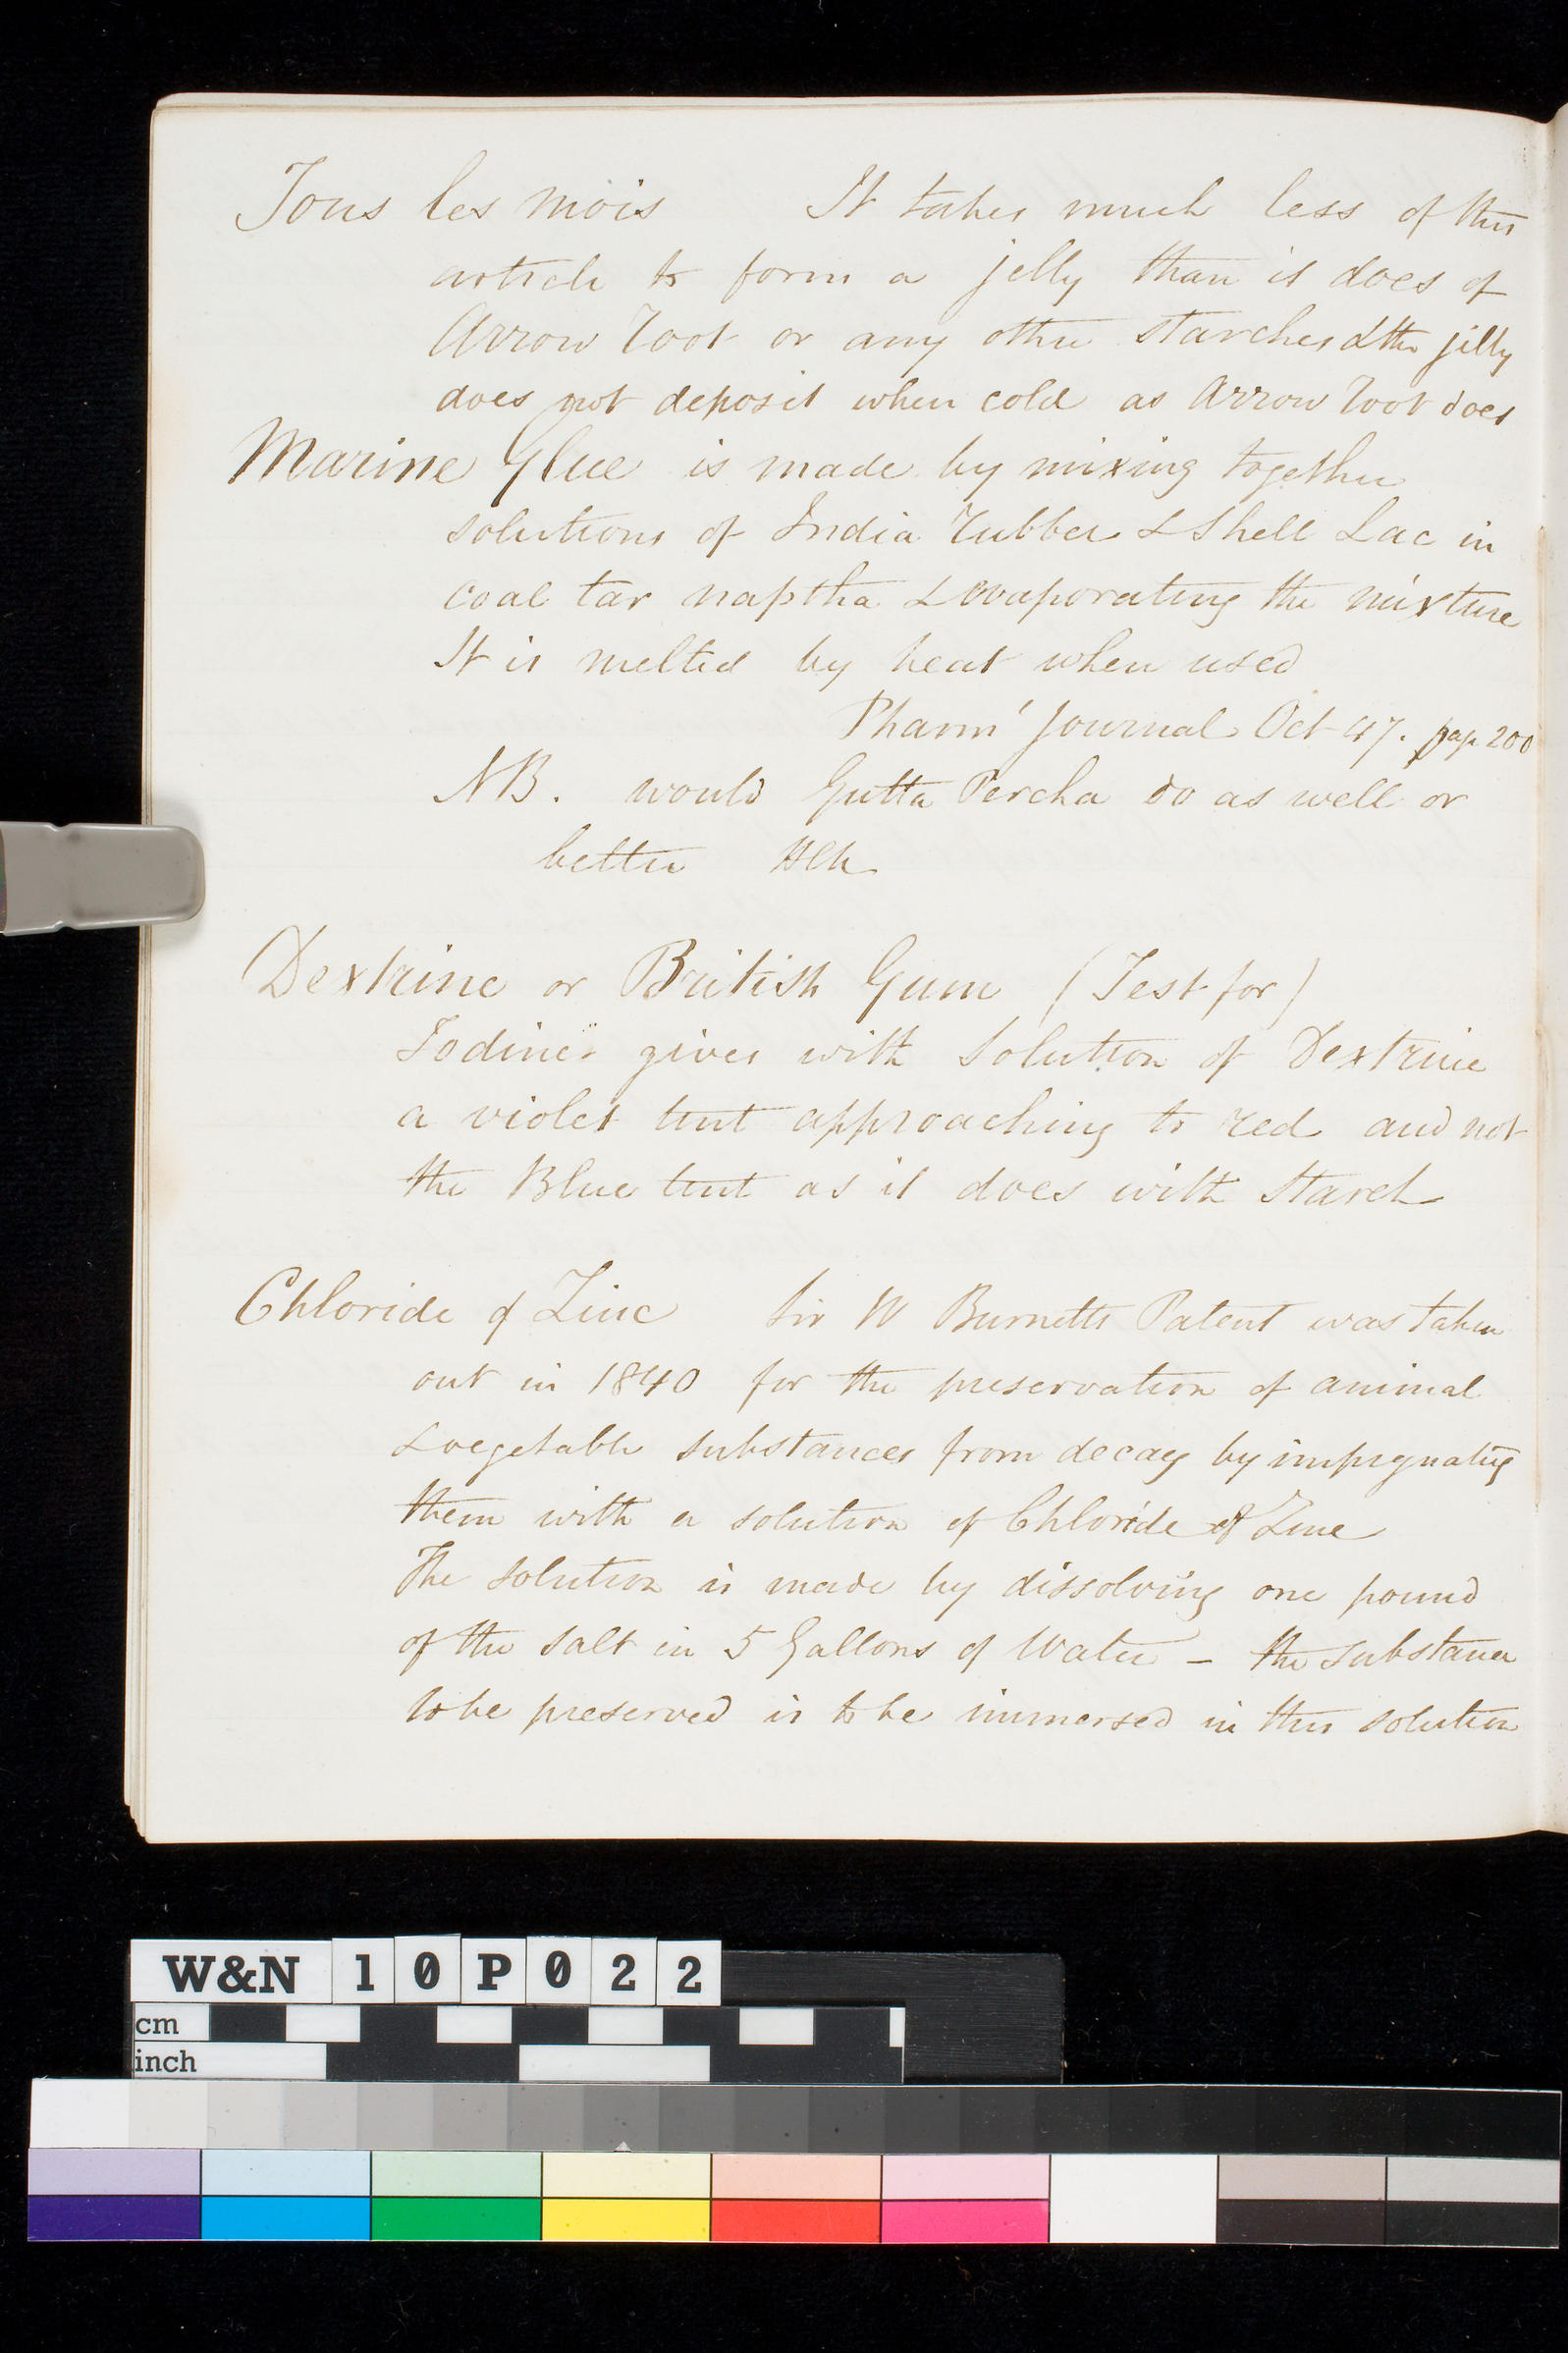 Tous les mois It takes much less of this
article to form a jelly than it does of
Arrow root or any other starches & the jelly
does not deposit when cold as Arrow root does
Marine Glue is made by mixing together
solutions of India rubber & Shell Lac in
coal tar naptha & evaporating the mixture
It is melted by heat when used
Pharm' Journal Oct 47. page 200
NB. would Gutta Percha do as well or
better
Dextrine or British Gum (Test for)
Iodine gives with solution of Dextrine
a violet tint approaching to red and not
the Blue tint as it does with Starch
Chloride of Zinc Sir W Burnetts Patent was taken
out in 1840 for the preservation of animal
& vegetable substances from decay by impregnating
them with a solution of Chloride of Zinc
The solution is made by dissolving one pound
of the salt in 5 Gallons of Water – the substance
to be preserved is to be immersed in this solution
W&N 10P022
cm
inch